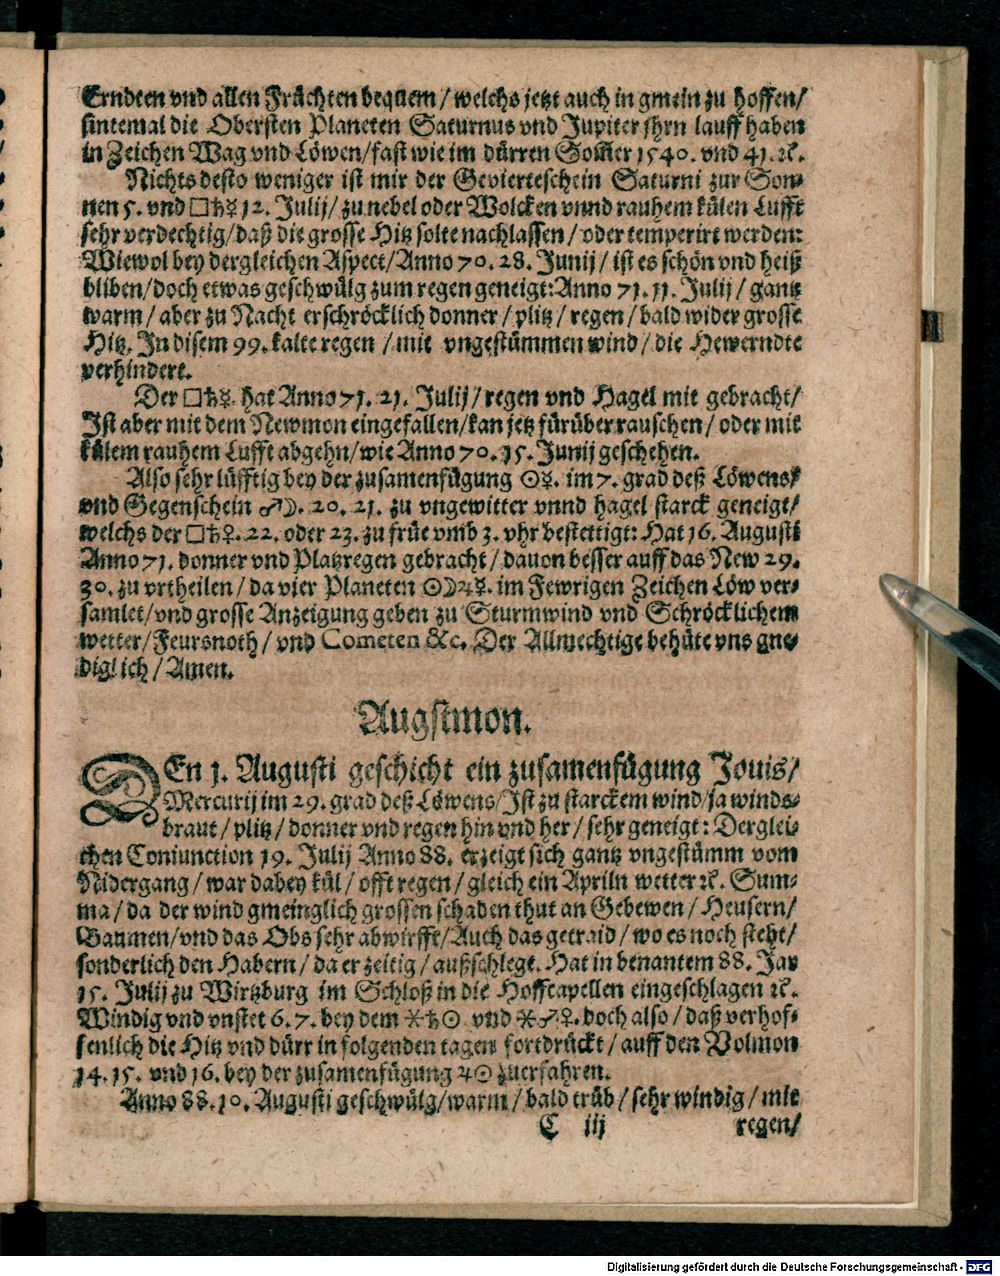 Erndten vnd allen Früchten bequem / welchs jetzt auch in gmein zu hoffen/
sintemal die Obersten Planeten Saturnus vnd Jupiter jhrn lauff haben
in Zeichen Wag vnd Löwen/fast wie im dürren Som̃er 1540. vnd 41. ꝛc.
Nichts desto weniger ist mir der Gevierteschein Saturni zur Son-
nen 5. vnd □♄☿ 12. Julij/ zu nebel oder Wolcken vnnd rauhem külen Lufft
sehr verdechtig/daß die grosse Hitz solte nachlassen / oder temperirt werden:
Wiewol bey dergleichen Aspect/Anno 70. 28. Junij / ist es schön vnd heiß
bliben/doch etwas geschwülg zum regen geneigt:Anno 71. 11. Julij / gantz
warm / aber zu Nacht erschröcklich donner / plitz / regen / bald wider grosse
Hitz. In disem 99. kalte regen / mit vngestümmen wind / die Hewerndte
verhindert.
Der □♄☿ hat Anno 71. 21. Julij / regen vnd Hagel mit gebracht/
Ist aber mit dem Newmon eingefallen/kan jetz fürüber rauschen / oder mit
külem rauhem Lufft abgehn/wie Anno 70. 15. Junij geschehen.
Also sehr lüfftig bey der zusamenfügung ☉☿. im 7. grad deß Löwens/
vnd Gegenschein ♂☽. 20. 21. zu vngewitter vnnd hagel starck geneigt/
welchs der □♄♀. 22. oder 23. zu früe vmb 3. vhr bestettigt: Hat 16. Augusti
Anno 71. donner vnd Platzregen gebracht / dauon besser auff das New 29.
30. zu vrtheilen / da vier Planeten ☉☽♃☿. im Fewrigen Zeichen Löw ver-
samlet/vnd grosse Anzeigung geben zu Sturmwind vnd Schröcklichem
wetter/Feursnoth / vnd Cometen &c. Der Allmechtige behüte vns gne-
diglich / Amen.
Augstmon.
DEn 1. Augusti geschicht ein zusamenfügung Jouis/
Mercurij im 29. grad deß Löwens/Ist zu starckem wind/ja winds-
braut / plitz / donner vnd regen hin vnd her / sehr geneigt: Derglei-
chen Coniunction 19. Julij Anno 88. erzeigt sich gantz vngestümm vom
Nidergang / war dabey kül / offt regen / gleich ein Apriln wetter ꝛc. Sum-
ma / da der wind gmeinglich grossen schaden thut an Gebewen / Heusern/
Baumen/vnd das Obs sehr abwirfft/Auch das getraid / wo es noch steht/
sonderlich den Habern / da er zeitig / außschlegt. Hat in benantem 88. Jar
15. Julij zu Wirtzburg im Schloß in die Hoffcapellen eingeschlagen ꝛc.
Windig vnd vnstet 6. 7. bey dem ⚹♄☉ vnd ⚹♂♀. doch also / daß verhof-
fenlich die Hitz vnd dürr in folgenden tagen fortdrückt / auff den Volmon
14. 15. vnd 16. bey der zusamenfügung ♃☉ zuerfahren.
Anno 88. 10. Augusti geschwülg/warm / bald trüb / sehr windig / mit
C iij regen/
Digitalisierung gefördert durch die Deutsche Forschungsgemeinschaft - DFG